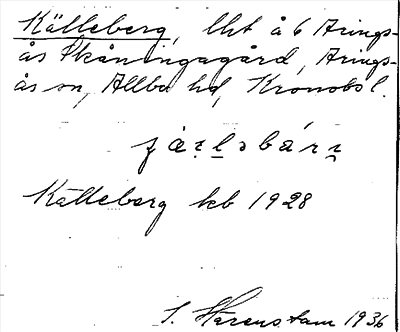 Källeberg, lht å 6 Arings-
ås Skåningagård, Arings-
ås sn, Allbo hd, Kronobl.
Källeberg kb 1928
S. Härenstam 1936